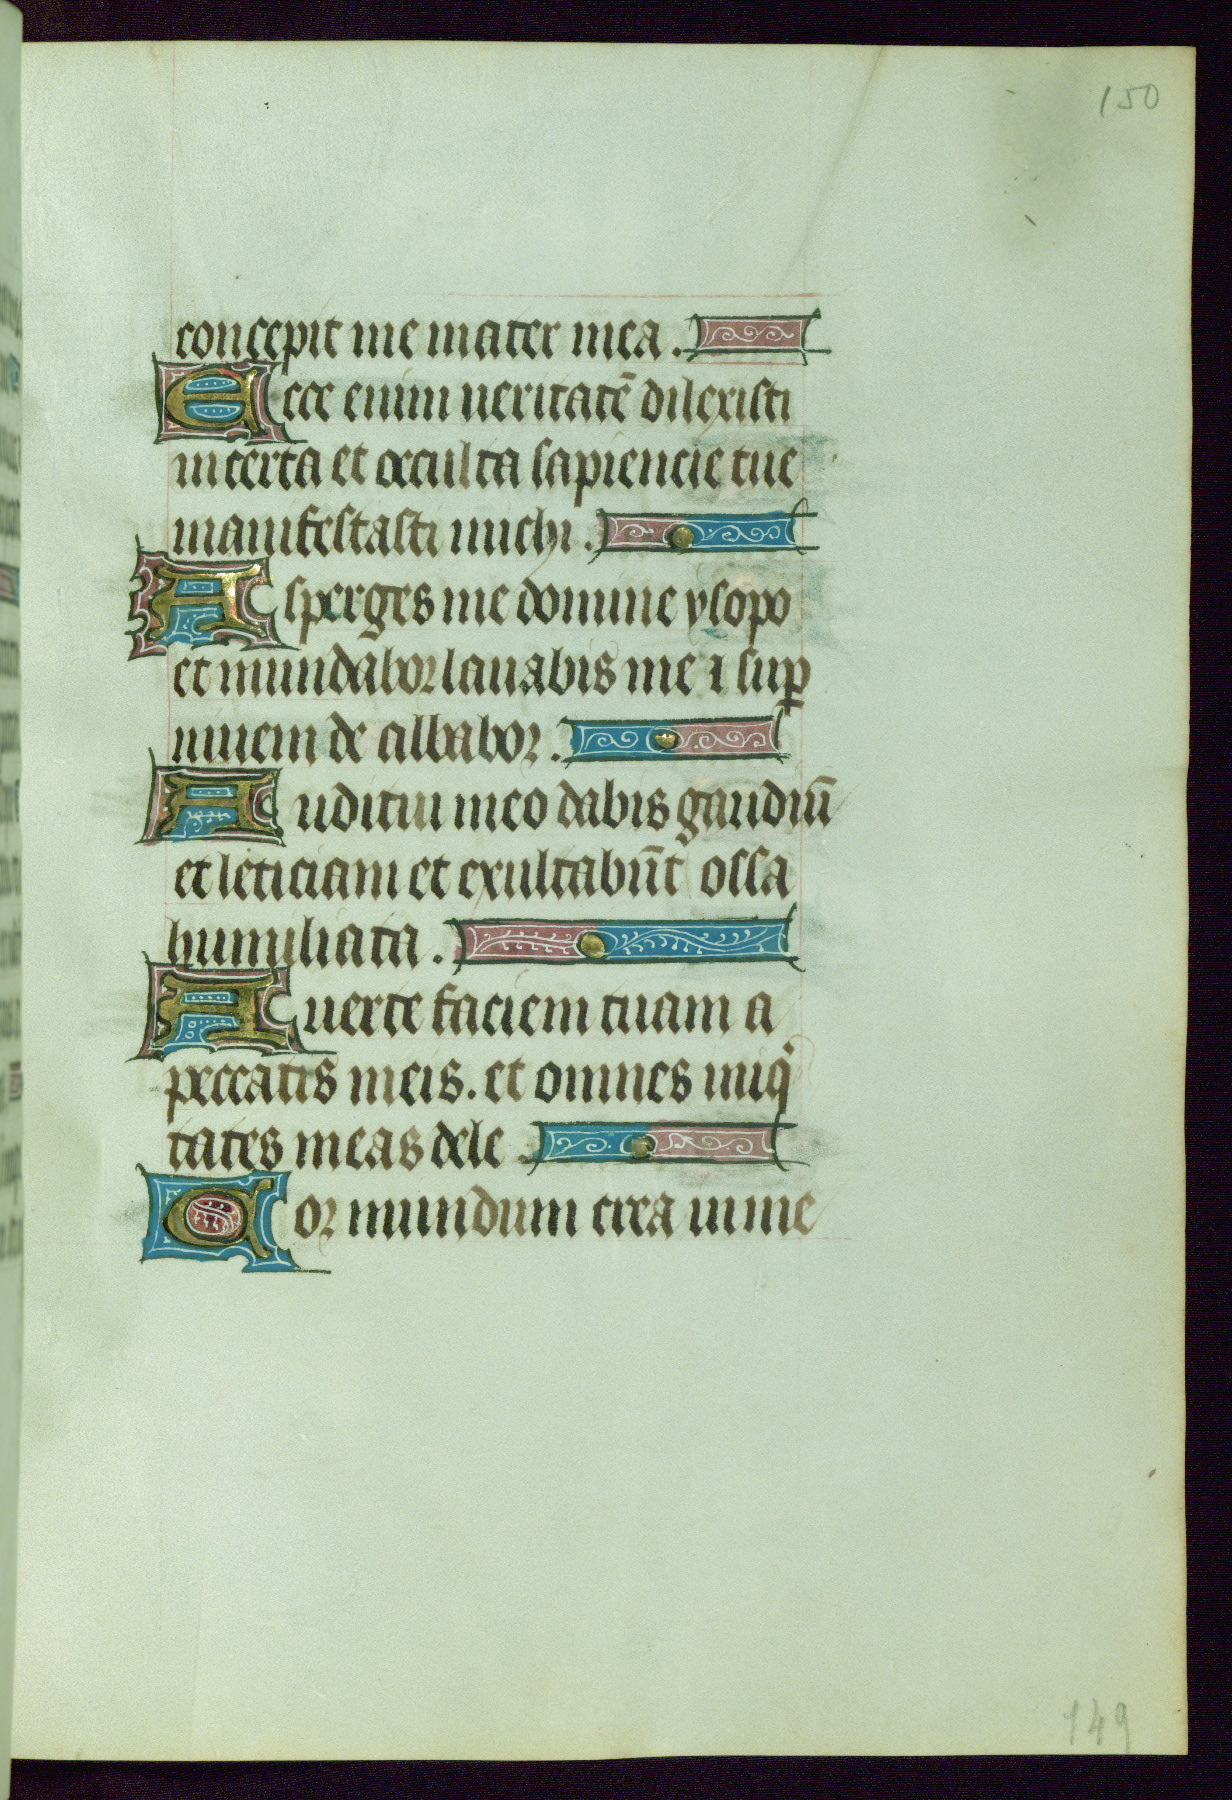 150
concepit me mater mea.
Ecce enim ueritatē dilexisti
incerta et occulta sapiencie tue
manifestasti michi.
Asperges me domine ysopo
et mundabor lauabis me ⁊ suꝑ
niuem de albabor.
Auditui meo dabis gaudiū
et leticiam et exultabūt ossa
humiliata.
Auerte faciem tuam a
peccatis meis. et omnes iniqⁱ
tates meas dele.
Cor mundum crea in me
149